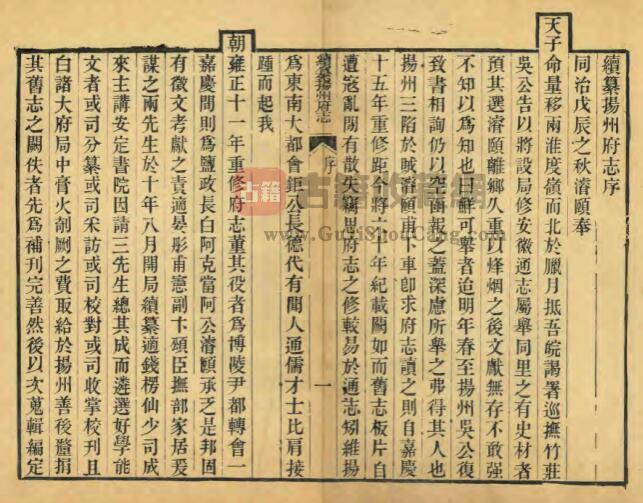 續纂揚州府志序
同治戊辰之秋濬頤奉
天子命量移兩淮度嶺而北於臘月抵吾皖謁署巡撫竹莊
吳公告以將設局修安徽通志屬舉同里之有史材者
預其選濬頤離鄉久重以烽烟之後文獻無存不敢强
不知以爲知也曰鮮可舉者迨明年春至揚州吳公復
致書相詢仍以空函報之蓋深慮所舉之弗得其人也
揚州三陷於賊濬頤甫下車卽求府志讀之則自嘉慶
十五年重修距今將六十年紀載闕如而舊志板片自
遭寇亂間有散失竊思府志之修較易於通志矧維揚
續纂揚州府志
序
一
爲東南大都會鉅公長德代有聞人通儒才士比肩接
踵而起我
朝雍正十一年重修府志董其役者爲博陵尹都轉會一
嘉慶間則爲鹽政長白阿克當阿公濬頤承乏是邦固
有徵文考獻之責適晏彤甫憲副卞頌臣撫部家居爰
謀之兩先生於十年八月開局續纂適錢楞仙少司成
來主講安定書院因請三先生總其成而遴選好學能
文者或司分纂或司采訪或司校對或司收掌校刊且
白諸大府局中膏火剞劂之費取給於揚州善後釐捐
其舊志之闕佚者先爲補刊完善然後以次蒐輯編定
古籍收藏网
www.GujiShouCang.com